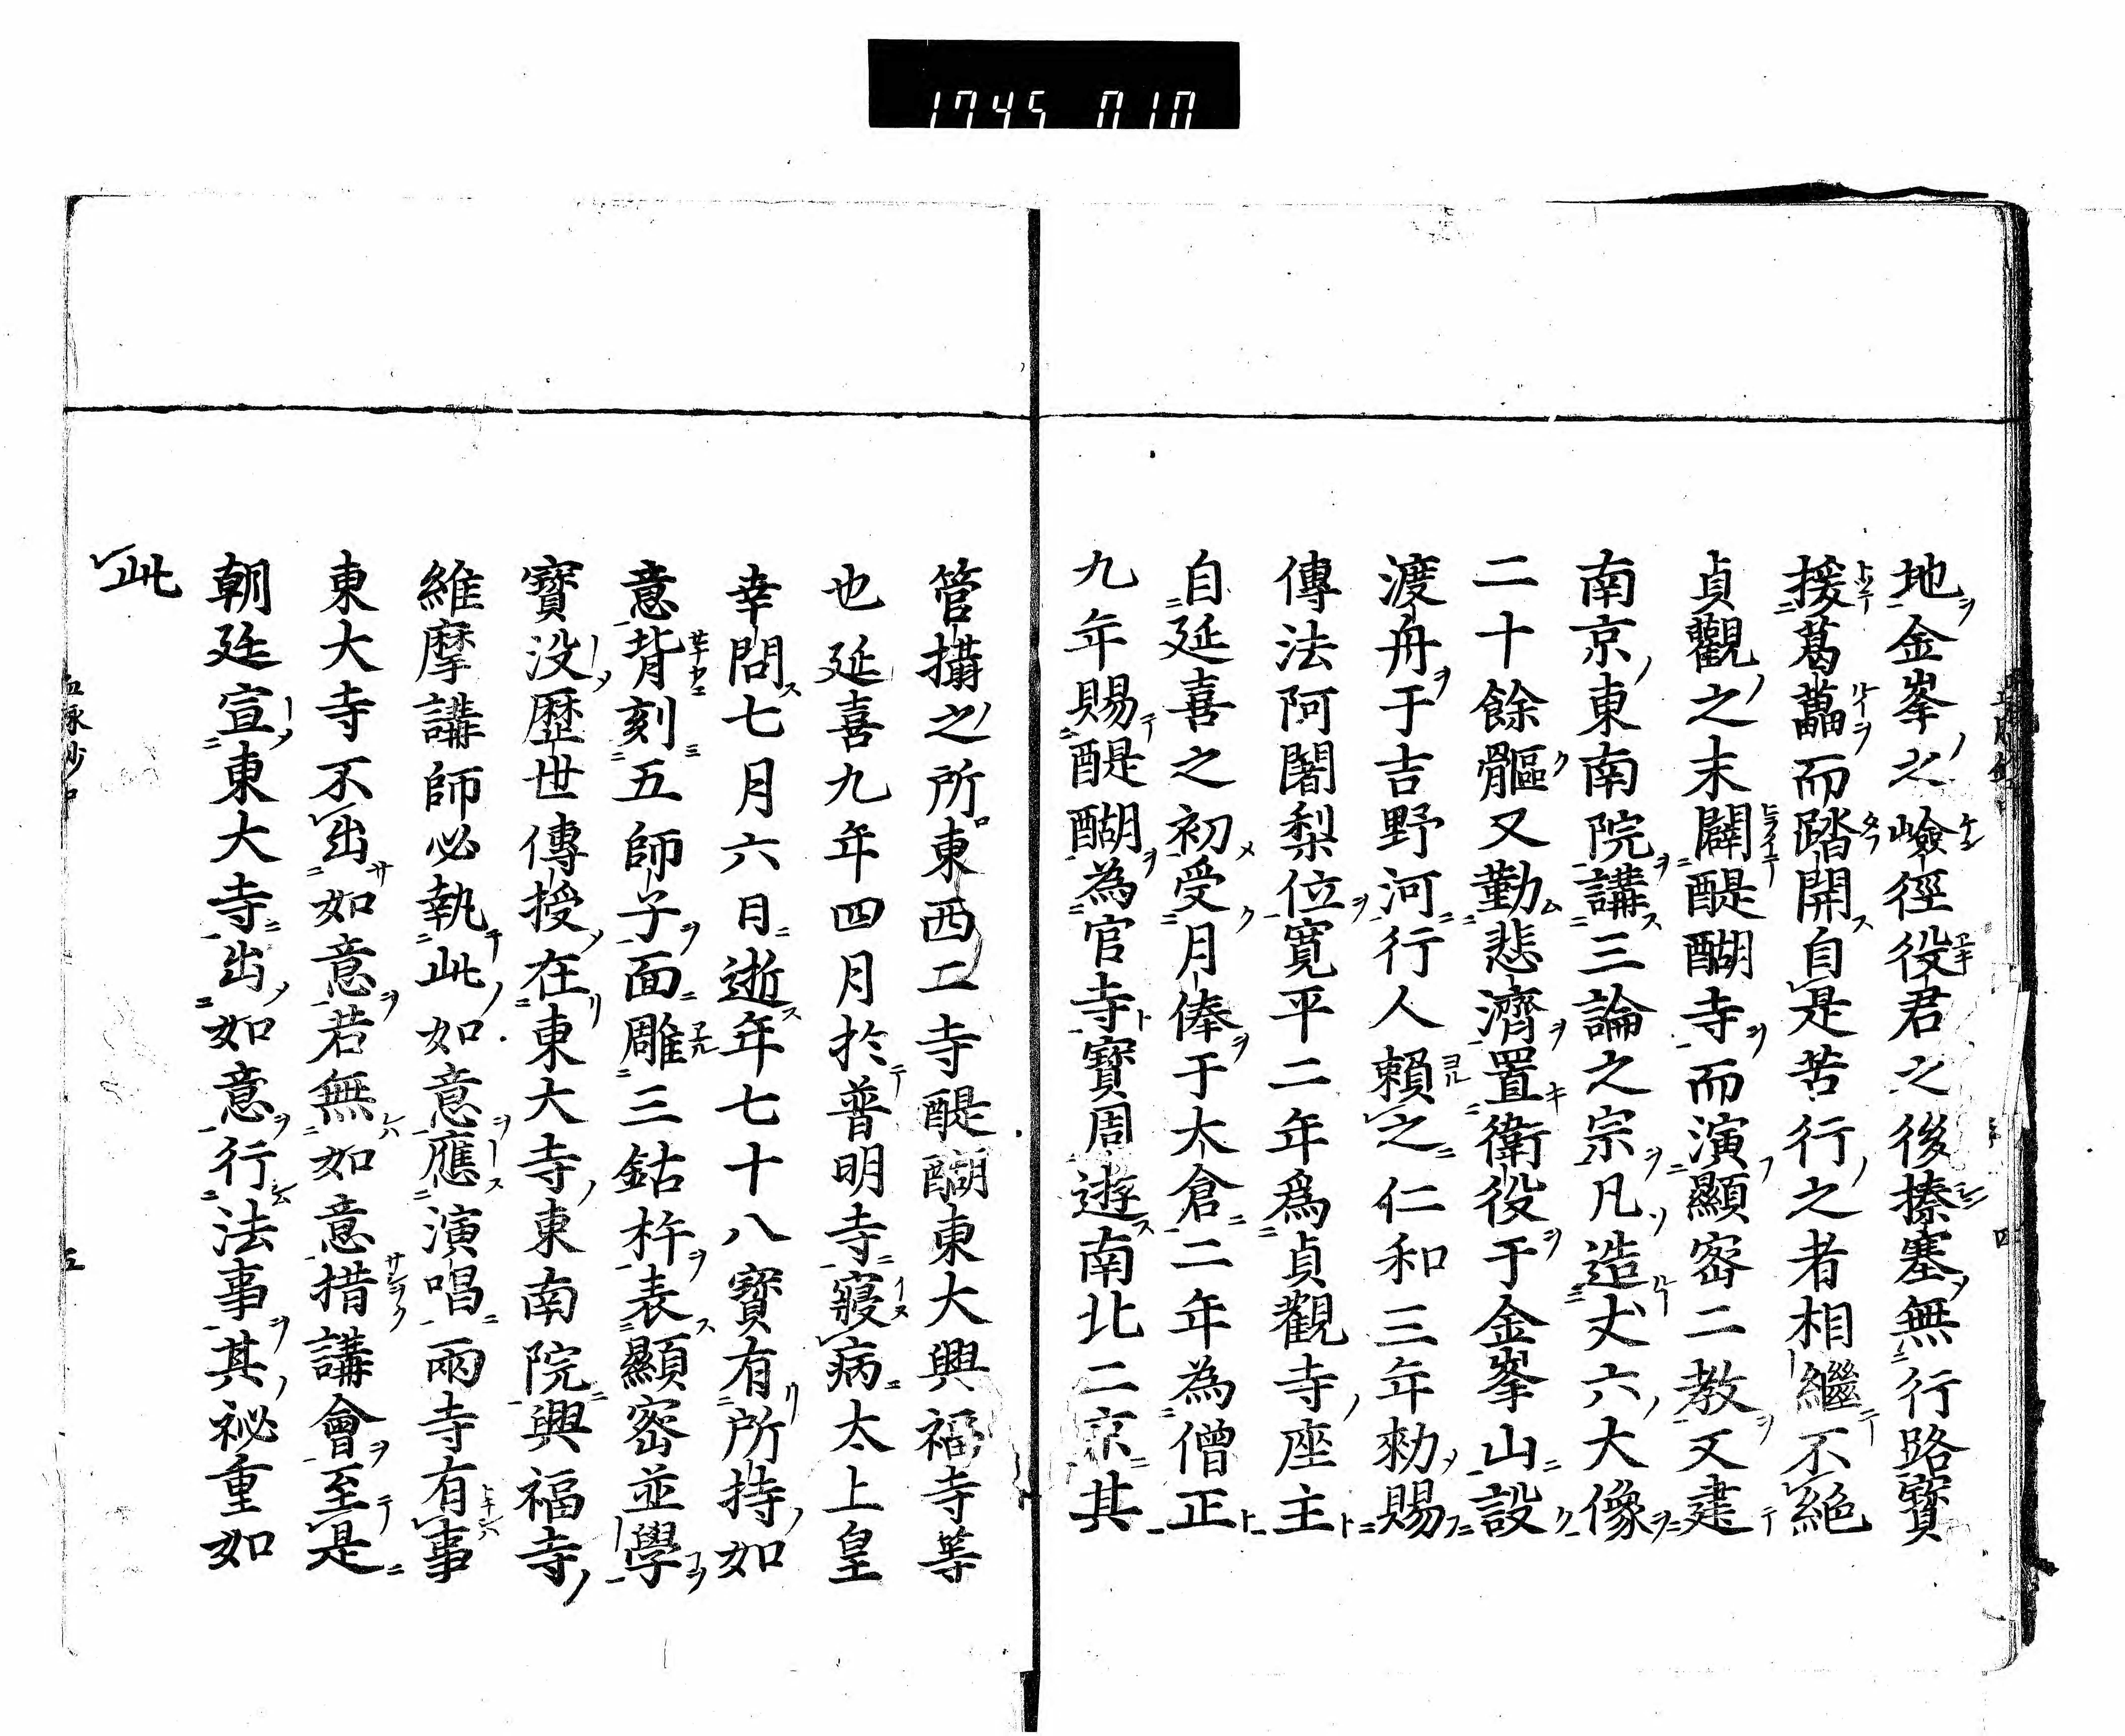 1745 010
地金峯之嶮徑役君之後榛塞無行路寳
援葛藟而踏開自是苦行之者相繼不絶
貞觀之末闢醍醐寺而演顯密二教又建
南京東南院講三論之宗凡造丈六大像
二十餘軀又勤悲濟置衛役于金峯山設
渡舟于吉野河行人賴之仁和三年勑賜
傳法阿闍梨位寛平二年爲貞觀寺座主
自延喜之初受月俸于太倉二年為僧正
九年賜醍醐為官寺寳周遊南北二京其
管攝之所東西二寺醍醐東大興福寺等
也延喜九年四月於普明寺寢病太上皇
幸問七月六日逝年七十八寳有所持如
意背刻五師子面雕三鈷杵表顯密並學
寳没歴世傳授在東大寺東南院興福寺
維摩講師必執此如意應演唱兩寺有事
東大寺不出如意若無如意措講會至是
朝廷宣東大寺出如意行法事其祕重如
此